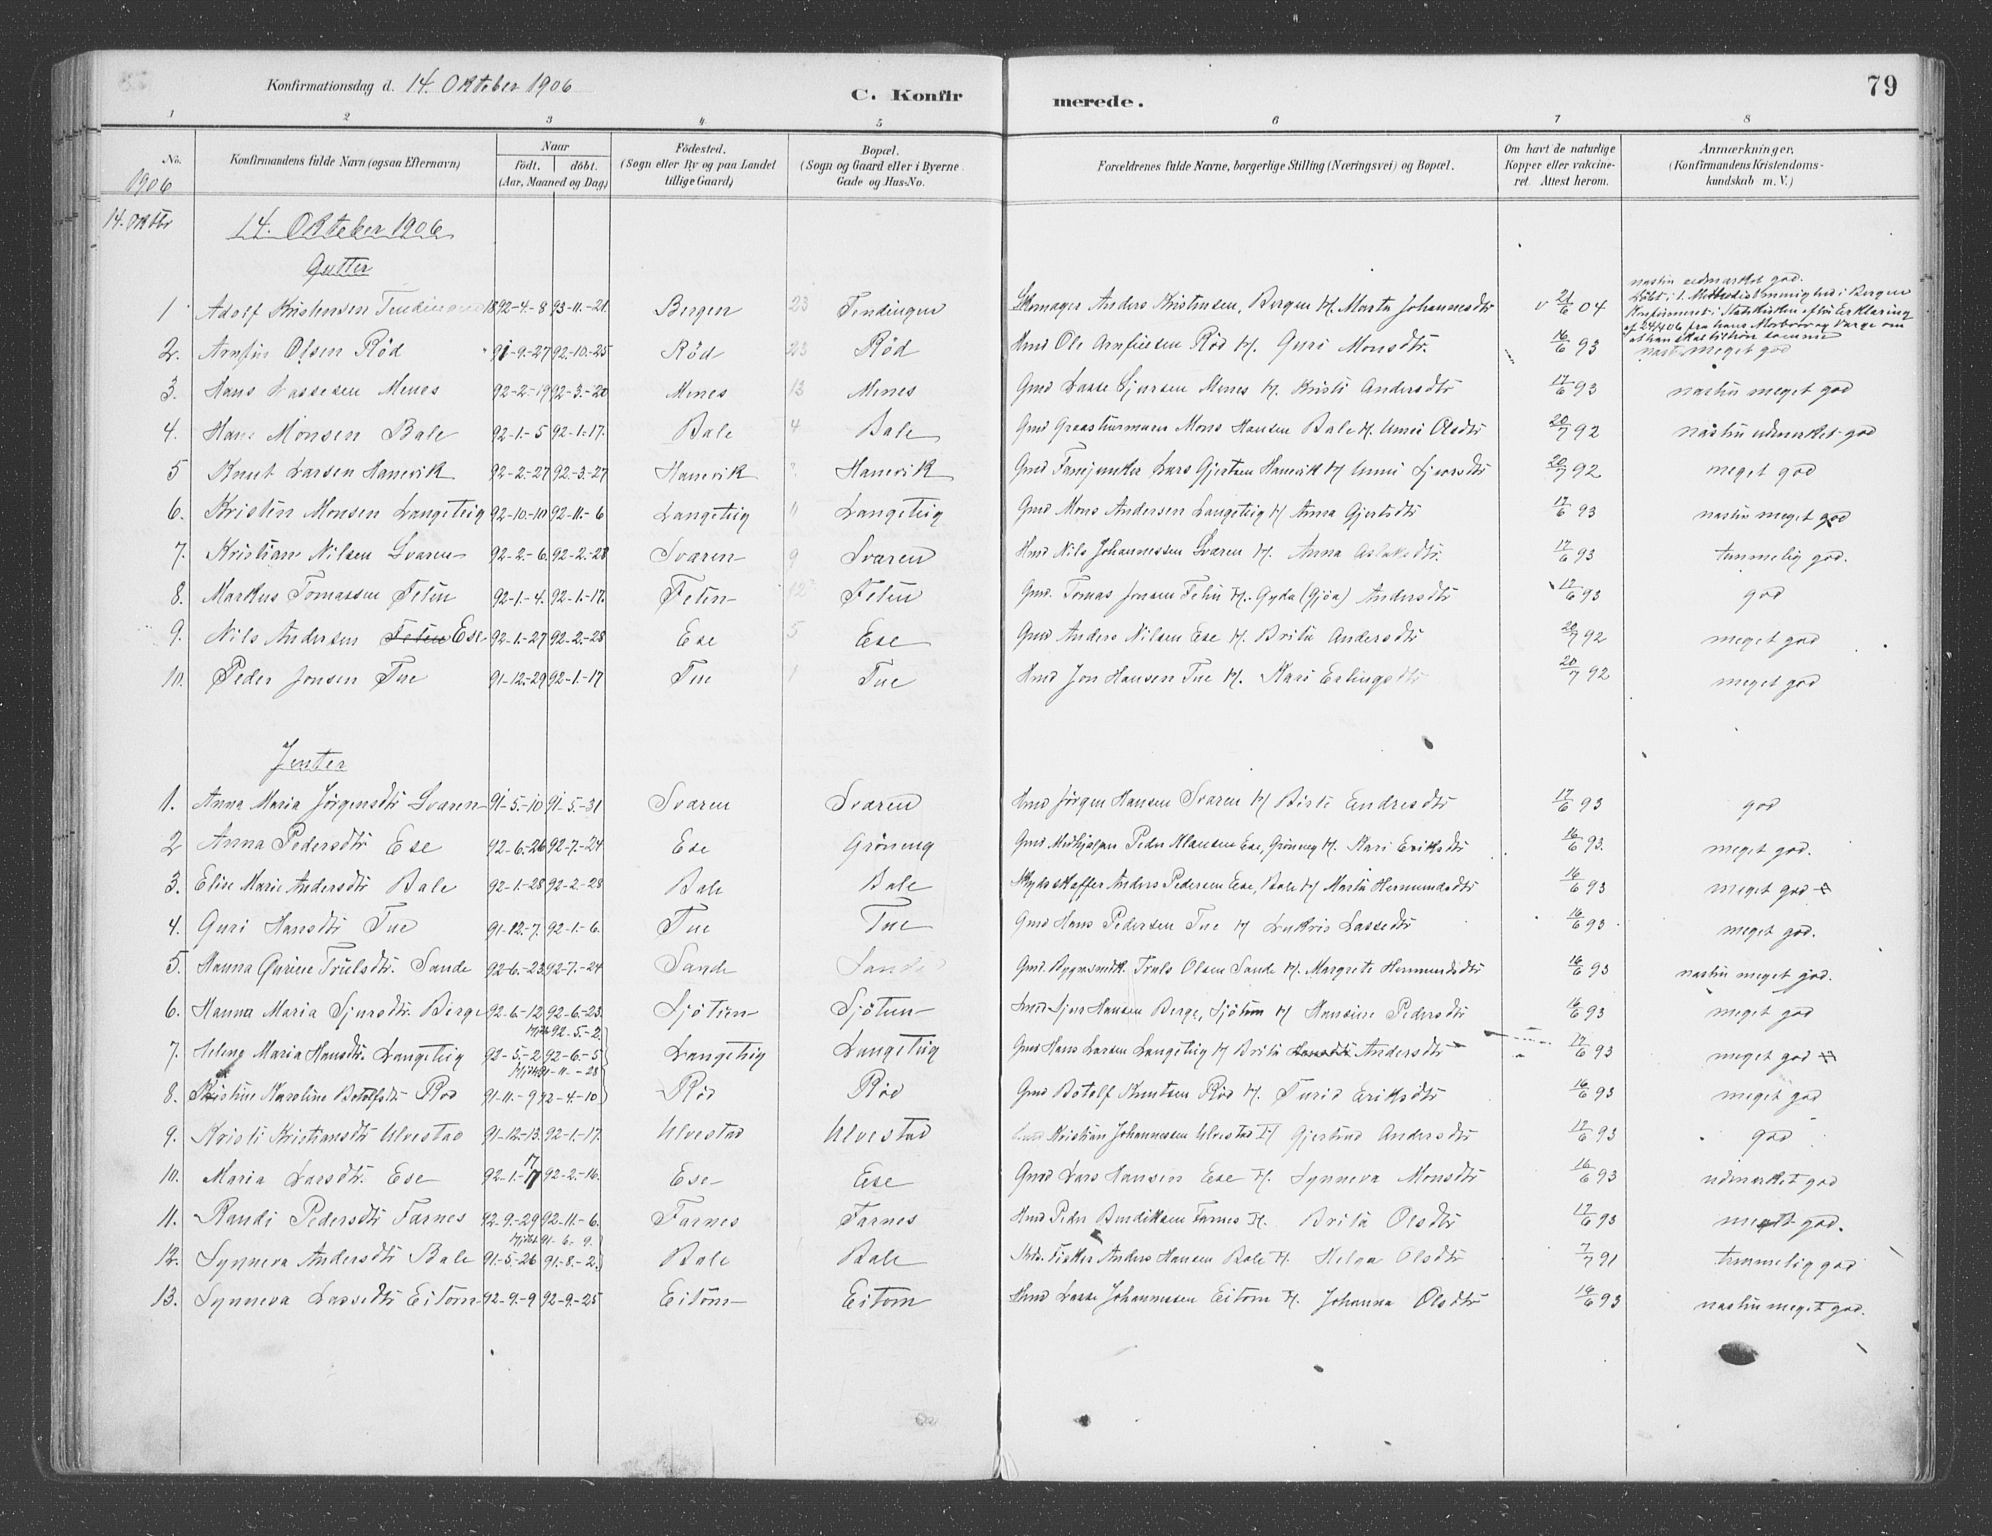 Konfirmationsdag d. 14. Oktober 1906
C. Konfirmerede.
79
1 2 3 4 5 6 7 8
No. Konfirmandens fulde Navn (ogsaa Efternavn) Naar födt. döbt. (Aar, Maaned og Dag) Födested. (Sogn eller By og paa Landet tillige Gaard) Bopæl. (Sogn og Gaard eller i Byerne Gade og Hus-No. Forældrenes fulde Navne, borgerlige Stilling (Næringsvei) og Bopæl. Om havt de naturlige Kopper eller vakcineret. Attest herom. Anmærkninger. (Konfirmandens Kristendomskundskab m. V.)
1906
14. Oktbr 14. Oktober 1906
Gutter
1 Adolf Kristensen Tendingen 1892-4-8 93-11-21 Bergen 23 Tendingen Skomager Anders Kristensen, Bergen H. Marta Johannesdtr v 21/6 04 næsten udmærket god. Döbt i 1. Methodistmenighed i Bergen
2. Arnfin Olsen Röd 91-9-27 92-10-25 Röd 23 Röd Hmd Ole Arnfinsen Röd H. Guri Monsdtr. 16/6 93 næsten meget god
3. Hans Lassesen Menes 92-2-19 92-3-20 Menes 13 Menes Gmd Lasse Sjursen Menes H. Kristi Andersdtr 17/6 93 næsten meget god
4. Hans Monsen Bale 92-1-5 92-1-17. Bale 4 Bale Gmd Mons Hansen Bale H. Unni Olsdtr 20/7 92 næsten udmærket god
5 Knut Larsen Hamrik 92-2-27 92-3-27 Hamrik Hamrik Gmd Lars Gjertsen Hamrik H. Unni Sjursdtr 20/7 92 meget god
6. Kristen Monsen Langeteig 92-10-10 92-11-6 Langeteig 11 Langeteig Gmd Mons Andersen Langeteig H. Anna Gjertsdtr 17/6 93 næsten meget god
7. Kristian Nilsen Svaren 92-2-6. 92-2-28 Svaren 9 Svaren Hmd Nils Johannessen Svaren H. Anna Aslaksdtr. 17/6 93 temmelig god.
8. Markus Tomassen Feten 92-1-4. 92-1-17. Feten 12 Feten Gmd. Tomas Jonsen Feten H. Gyda (Gjöa) Andersdtr 17/6 93 god
9. Nils Andersen Feten Ese 92-1-27 92-2-28 Ese 5 Ese Gmd Anders Nilsen Ese H. Brita Andersdtr 20/7 92 meget god
10. Peder Jonsen Tue 91-12-29 92-1-17 Tue 1 Tue Hmd Jon Hansen Tue H. Kari Erlingsdtr 20/7 92 meget god
Jenter
1. Anna Maria Jörgensdtr Svaren 91-5-10 91-5-31 Svaren Svaren Hmd Jörgen Hansen Svaren H. Birte Endresdtr 17/6 93 god
2 Anna Pedersdtr Ese 92-6-26 92-7-24 Ese Gröneng Gmd Peder Klausen Ese, Gröneng H. Kari Eriksdtr 16/6 93. meget god.
3. Elise Marie Andersdtr Bale 92-1-28 92-2-28 Bale Bale Skydsskaffer Anders Pedersen Ese, Bale H Marta Hermundsdtr 16/6 93 meget god
4. Guri Hansdtr Tue 91-12-7. 92-1-6. Tue Tue Gmd Hans Pedersen Tue H Lukris Lassedtr 16/6 93 meget god.
5. Hanna Gurine Trulsdtr. Sande 92-6-23 92-7-24 Sande Sande Gmd. Bygnsmdk. Truls Olsen Sande H. Margrete Hermundsdtr 16/6 93 næsten meget god.
6. Hanna Maria Sjursdtr. Berge 92-6-12 92-6-23 Sjötun Sjötun Sjur Hansen Berge, Sjötun H Hansine Pedersdtr 16/6 93 meget god
7. Helene Maria Hansdtr. Langeteig 92-5-2 Hjdbt 92-5-2. 92-6-5 Langeteig Langeteig Gmd Hans Larsen Langeteig H Brita Hansdtr Andersdtr 17/6 93 meget god
8. Kristine Karoline Botolfsdtr Röd 91-11-9 Hjdbt 91-11-28 92-4-10 Röd Röd Gmd Botolf Knutsen Röd H. Turid Eriksdtr 16/6 93 meget god
9. Kristi Kristiansdtr Ulvestad 91-12-13. 92-1-17. Ulvestad Ulvestad Kristian Johannessen Ulvestad H Gjertrud Andersdtr 17/6 93 god
10. Maria Larsdtr. Ese 92-1-17 92-2-16. Ese Ese Gmd Lars Hansen Ese H. Synneva Monsdtr 16/6 93 udmærket god
11. Randi Pedersdtr Farnes 92-9-29 92-11-6. Farnes Farnes Hmd Peder Bendiksen Farnes H. Brita Olsdtr 17/6 93 meget god.
12. Synneva Andersdtr Bale 91-5-26 Hjdbt 91-6-9. 91-8-2. Bale Bale Fisker Anders Hansen Bale H. Helga Olsdtr 7/7 91 temmelig god
13. Synneva Lassedtr Eitorn 92-9-9 92-9-25 Eitorn Eitorn Hmd Lasse Johannessen Eitorn H. Johanna Olsdtr 16/6 93 næsten meget god.